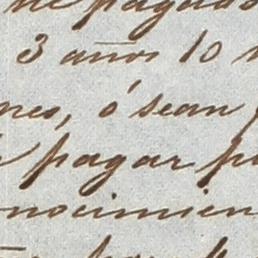 he pagado
3 años 10
nes, ó sean
pagar p
nocimien